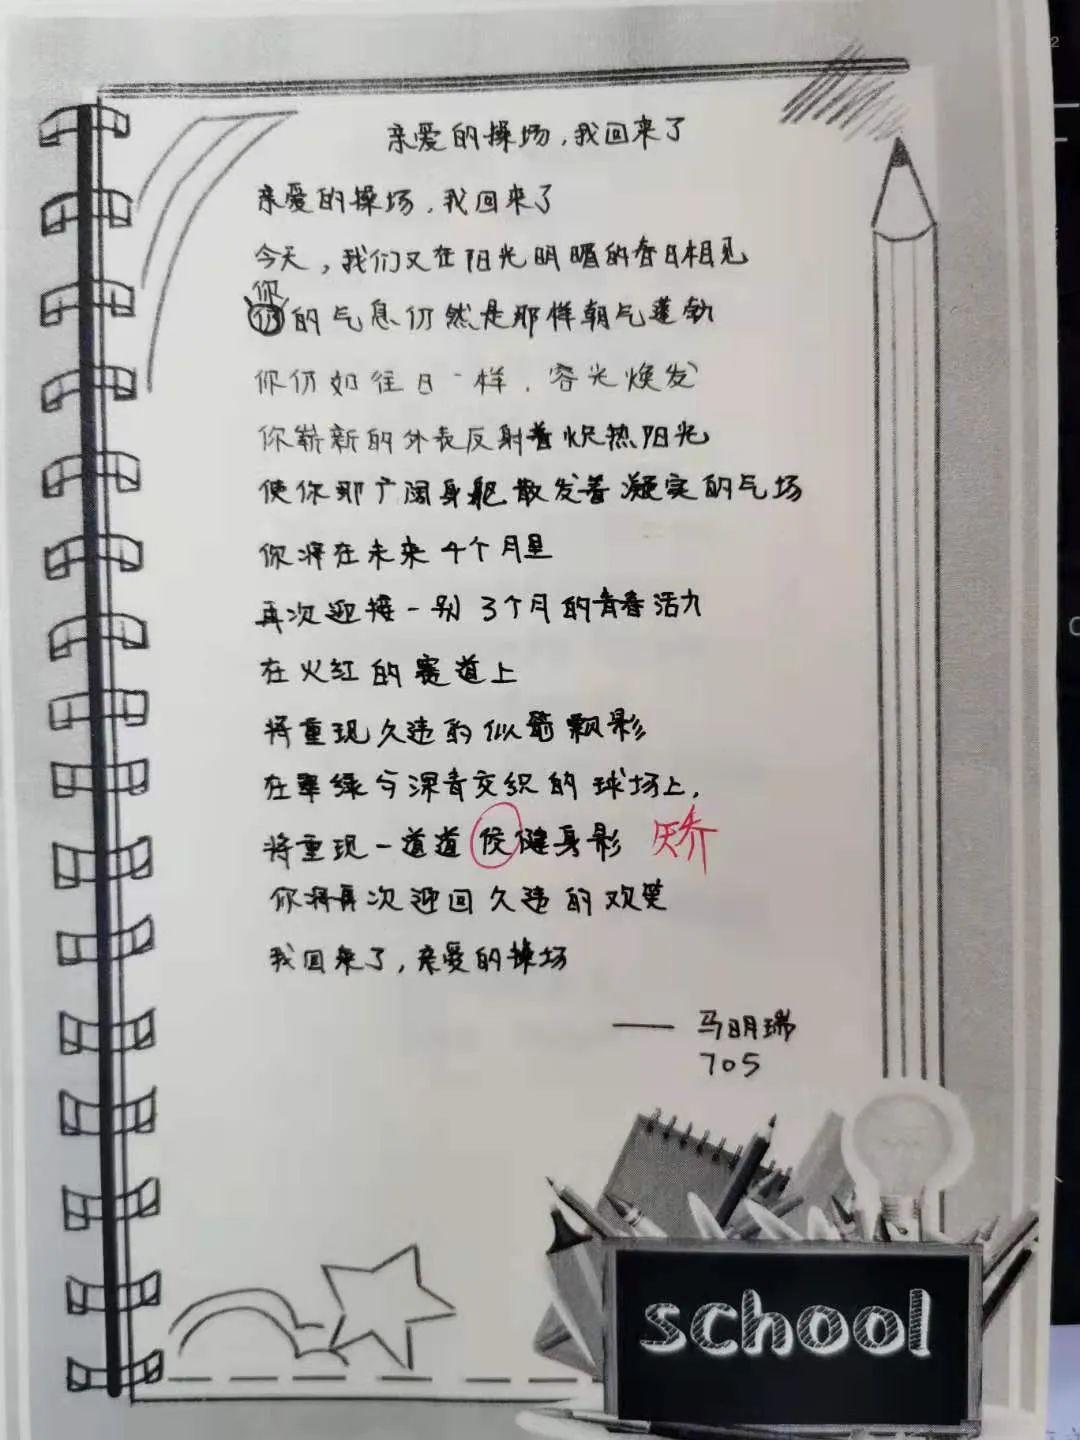 亲爱的操场，我回来了
亲爱的操场，我回来了
今天，我们又在阳光明媚的春日相见
你的气息仍然是那样朝气蓬勃
你仍如往日一样，容光焕发
你崭新的外表反射着炽热阳光
使你那广阔身躯散发着凝实的气场
你将在未来4个月里
再次迎接一别3个月的青春活力
在火红的赛道上
将重现久违的似箭飘影
在翠绿与深青交织的球场上，
将重现一道道侥健身影 矫
你将再次迎回久违的欢笑
我回来了，亲爱的操场
—— 马明瑞
705
school